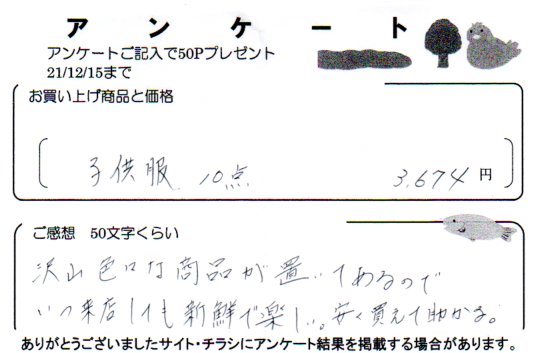 アンケート
アンケートご記入で50Pプレゼント
21/12/15まで
お買い上げ商品と価格
子供服 10点 3,674 円
ご感想 50文字くらい
沢山色々な商品が置いてあるので
いつ来店しても新鮮で楽しい。安く買えて助かる。
ありがとうございましたサイト・チラシにアンケート結果を掲載する場合があります。